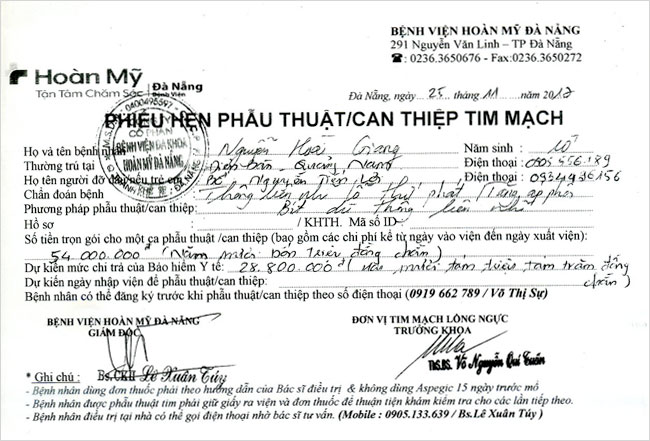 BỆNH VIỆN HOÀN MỸ ĐÀ NẴNG
291 Nguyễn Văn Linh – TP Đà Nẵng
☎: 0236.3650676 - Fax:0236.3650272
Hoàn Mỹ Đà Nẵng
Tận Tâm Chăm Sóc Bệnh Viện
Đà Nẵng, ngày 25 tháng 11 năm 2017
PHIẾU HẸN PHẪU THUẬT/CAN THIỆP TIM MẠCH
0400495597
CỔ PHẦN
BỆNH VIỆN ĐA KHOA
HOÀN MỸ ĐÀ NẴNG
Họ và tên bệnh nhân Nguyễn Hoài Giang Năm sinh :
Thường trú tại Điện Bàn - Quảng Nam Điện thoại :
Họ tên người đỡ đầu nếu trẻ em Bố: Nguyễn Tiến Điện thoại:
Chẩn đoán bệnh Thông liên nhĩ lỗ thứ phát / Tăng áp phổi
Phương pháp phẫu thuật/can thiệp: Bít dù thông liên nhĩ
Hồ sơ / KHTH. Mã số ID:
Số tiền trọn gói cho một ca phẫu thuật /can thiệp (bao gồm các chi phí kể từ ngày vào viện đến ngày xuất viện):
54.000.000 (Năm mươi bốn triệu đồng chẵn)
Dự kiến mức chi trả của Bảo hiểm Y tế: 28.800.000 (Hai mươi tám triệu tám trăm đồng chẵn)
Dự kiến ngày nhập viện để phẫu thuật/can thiệp:
Bệnh nhân có thể đăng ký trước khi phẫu thuật/can thiệp theo số điện thoại (0919 662 789 / Võ Thị Sự)
BỆNH VIỆN HOÀN MỸ ĐÀ NẴNG
GIÁM ĐỐC
ĐƠN VỊ TIM MẠCH LỒNG NGỰC
TRƯỞNG KHOA
Bs.CKII Lê Xuân Túy
ThS.BS. Võ Nguyễn Quí Tuấn
* Ghi chú :
- Bệnh nhân dùng đơn thuốc phải theo hướng dẫn của Bác sĩ điều trị & không dùng Aspegic 15 ngày trước mổ
- Bệnh nhân được phẫu thuật tim phải giữ giấy ra viện và đơn thuốc để thuận tiện khám kiểm tra cho các lần tiếp theo.
- Bệnh nhân điều trị tại nhà có thể gọi điện thoại nhờ bác sĩ tư vấn. (Mobile : 0905.133.639 / Bs.Lê Xuân Túy )